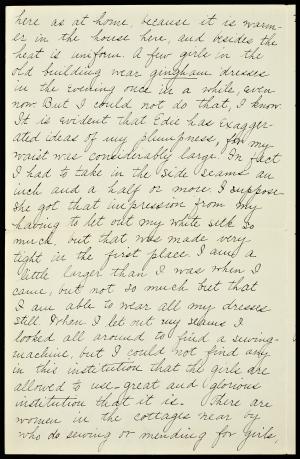 here as at home, because it is warm-
er in the house here, and besides the
heat is uniform. A few girls in the
old building wear gingham dresses
in the evening once in a while, even
now. But I could not do that, I know.
It is evident that Edie has exagger-
ated ideas of my plumpness, for my
waist was considerably large. In fact
I had to take in the side seams an
inch and a half or more. I suppose
she got that impression from my
having to let out my white silk so
much, but that was made very
tight in the first place. I am a
little larger than I was when I
came, but not so much but that
I am able to wear all my dresses
still. When I let out my seams I
looked all around to find a sewing-
machine, but I could not find any
in this institution that the girls are
allowed to use - great and glorious
institution that it is. There are
women in the cottages near by
who do sewing or mending for girls,